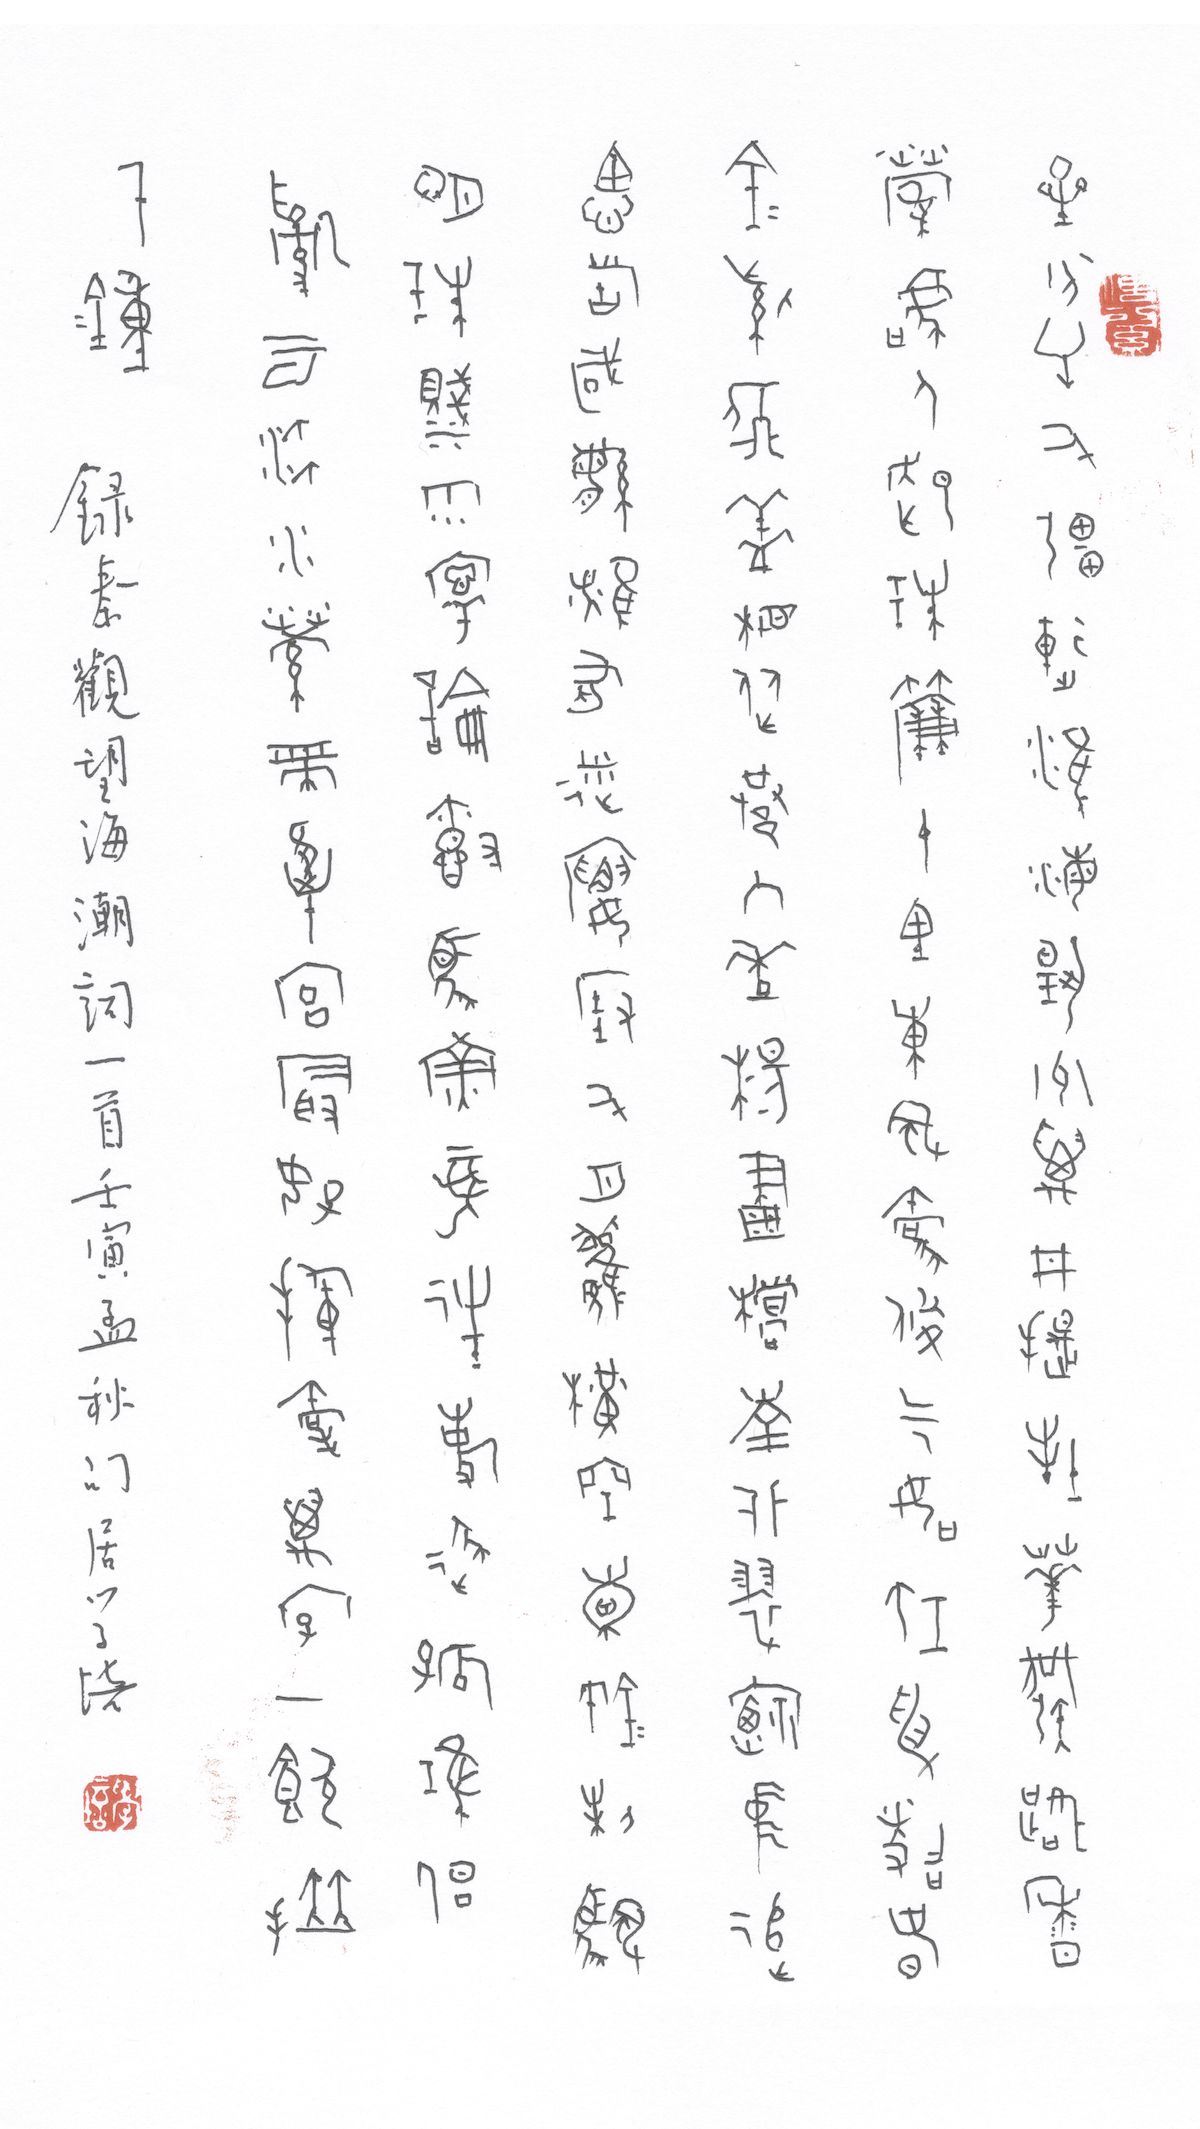 星分牛斗疆連淮海揚州萬井提封華發路香
鶯啼人起珠簾十里東風豪俊氣如虹曳照春
金紫飛蓋相從巷入垂楊畫橋南北翠煙中追
思故國繁雄有迷樓掛斗月觀橫空紋錦制帆
明珠濺雨寧論爵馬魚龍往事逐孤鴻但
亂雲流水縈帶離宮最好揮豪萬字一飲拚
千鍾 錄秦觀望海潮詞一首壬寅孟秋